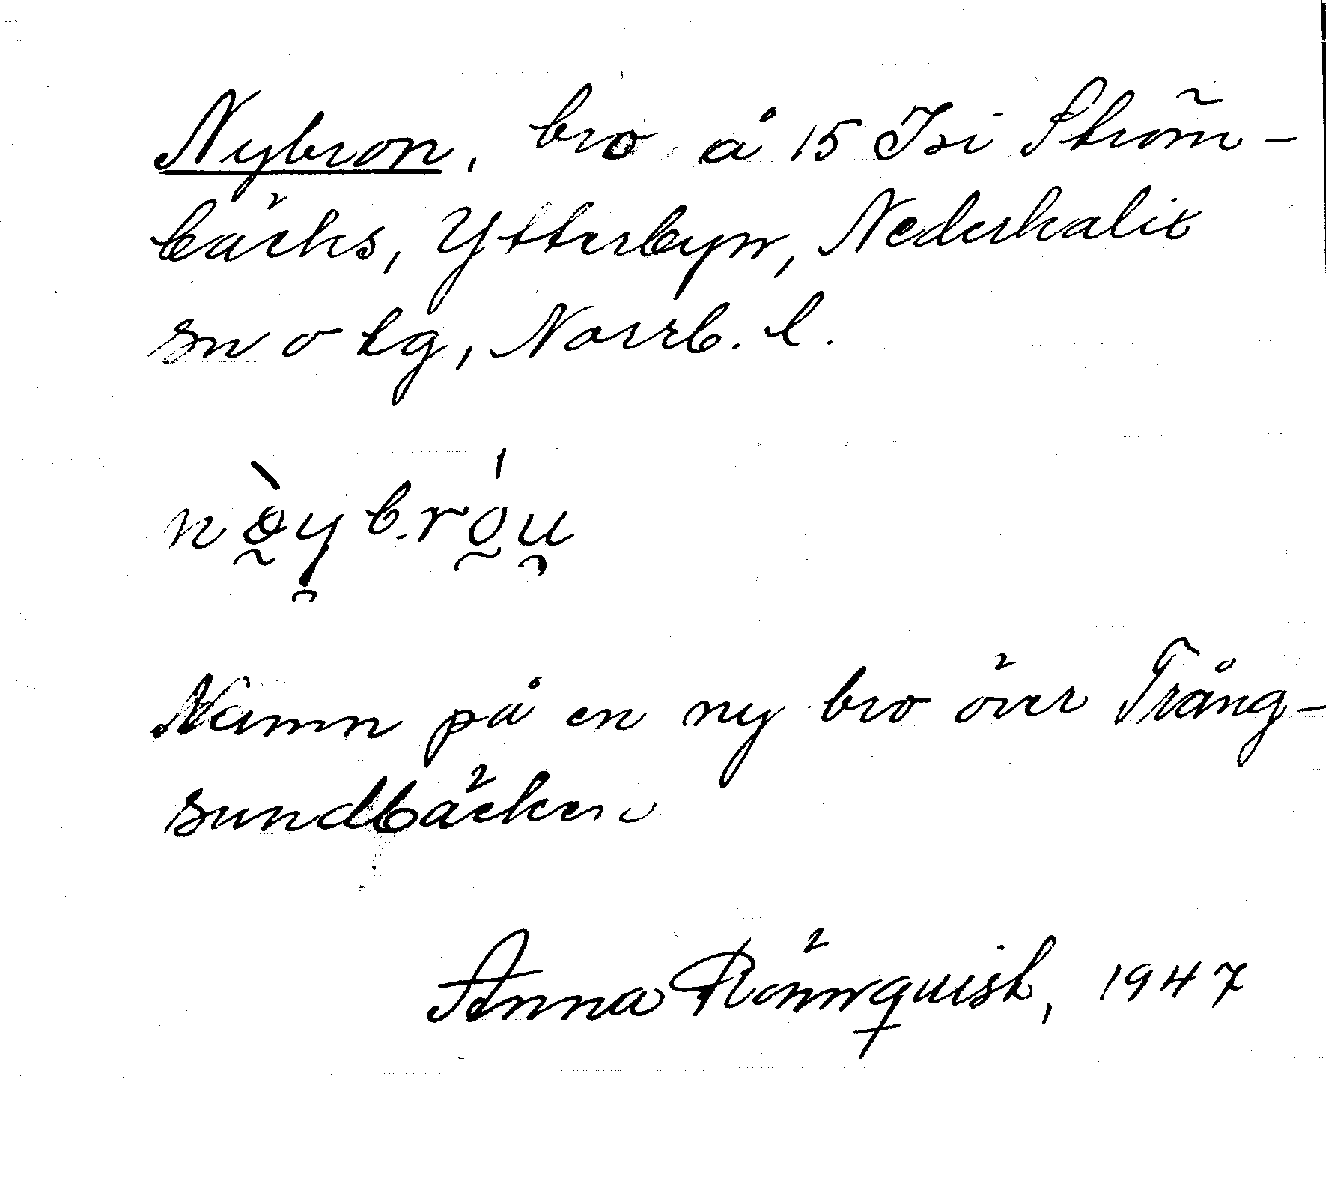 Nybron, bro å 15 Isi Ström-
bäcks, Ytterbyn, Nederkalix
sn o tg, Norrb. l.
Namn på en ny bro över Trång-
sundbäcken
Anna Rönnquist, 1947